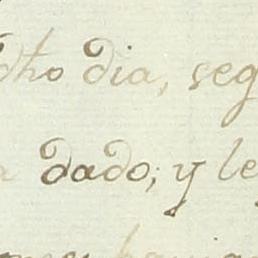 dho dia, seg
dado; y le